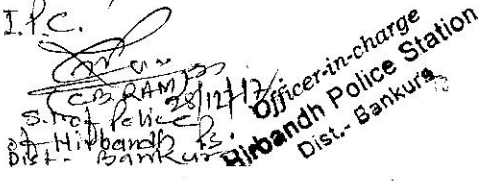 I.P.C.
(C.B. RAM)
28/12/17
S.I. of Police
of Hirbandh P.S.
Dist- Bankura
Officer-in-charge
Hirbandh Police Station
Dist.- Bankura